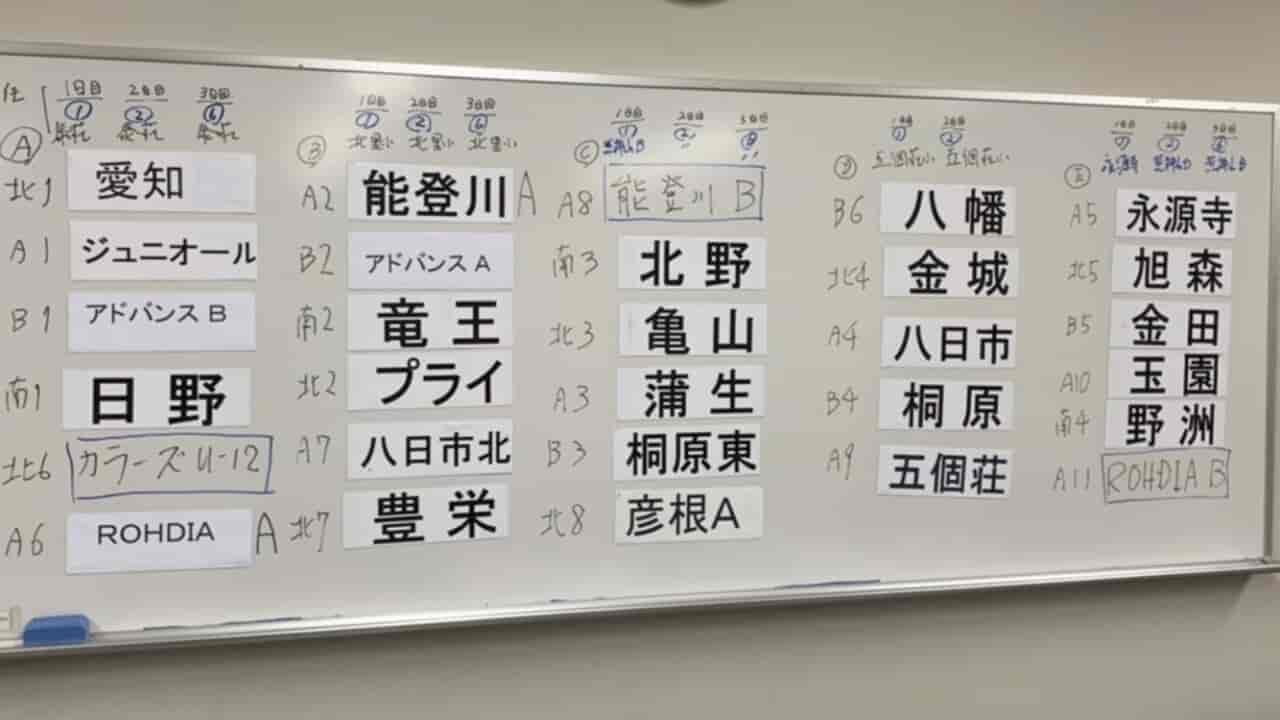 1日目 2日目 3日目
① ② ⑥
A
北1 愛知
A1 ジュニオール
B1 アドバンス B
南1 日野
北6 カラーズU-12
A6 ROHDIA A
1日目 2日目 3日目
① ② ⑥
B
A2 能登川 A
B2 アドバンス A
南2 竜王
北2 プライ
A7 八日市北
北7 豊栄
1日目 2日目 3日目
C
A8 能登川 B
南3 北野
北3 亀山
A3 蒲生
B3 桐原東
北8 彦根A
1日目 2日目
五個荘 五個荘
B6 八幡
北4 金城
A4 八日市
B4 桐原
A9 五個荘
1日目 2日目 3日目
A5 永源寺
北5 旭森
B5 金田
A10 玉園
南4 野洲
A11 ROHDIA B